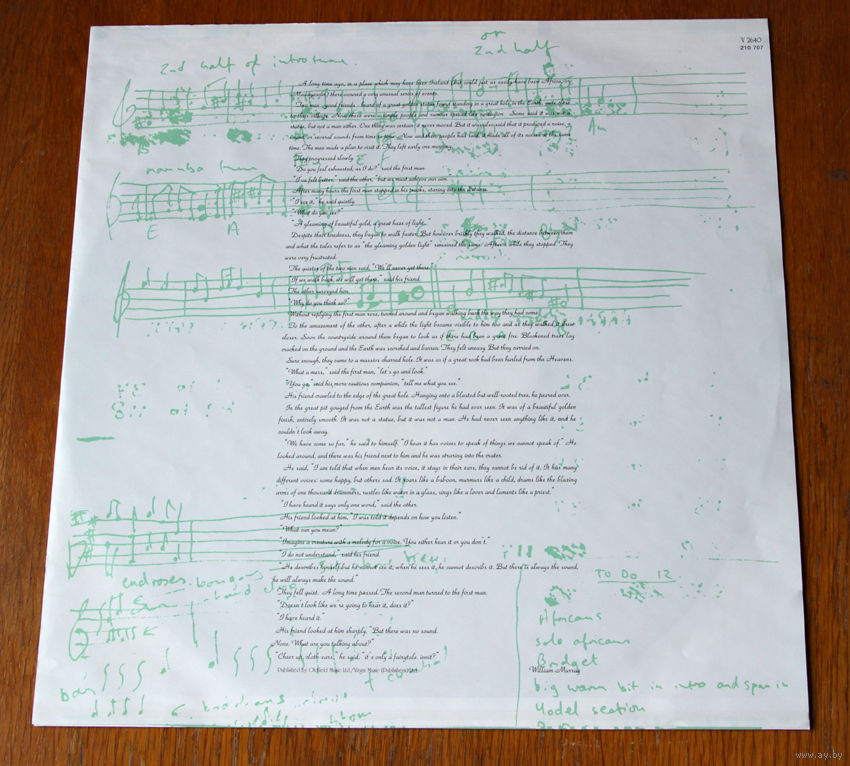 or
2nd half
V 2640
210 707
2nd half of intro tune
A long time ago, in a place which may have been Ireland (but could just as easily have been Africa, or
there occured a very unusual series of events.
Two men, good friends, heard of a great golden statue found standing in a great hole in the Earth, quite close
to their village. Now these were simple people and rumour spread like
Some said it was not a
statue, but not a man either. One thing was certain: it never moved. But it was also said that it produced a noise, a
sound or several sounds from time to time. Now and then people had said it made all of its noises at the same
time. The men made a plan to visit it. They left early one morning.
They progressed slowly.
marimba tune
E F
"Do you feel exhausted, as I do?" said the first man.
"I've felt better," said the other, "but we must achieve our aim."
After many hours the first man stopped in his tracks, staring into the distance.
"I see it," he said quietly.
"What do you see?"
"A gleaming of beautiful gold, a great haze of light."
E A
Despite their tiredness, they began to walk faster. But however briskly they walked, the distance between them
and what the tales refer to as "the gleaming golden light" remained the same. After a while they stopped. They
were very frustrated.
The quieter of the two men said, "We'll never get there."
"If we walk back, we will get there," said his friend.
The other surveyed him.
"Why do you think so?"
Without replying the first man rose, turned around and began walking back the way they had come.
To the amazement of the other, after a while the light became visible to him too and as they walked it drew
closer. Soon the countryside around them began to look as if there had been a great fire. Blackened trees lay
cracked on the ground and the Earth was scorched and barren. They felt uneasy. But they carried on.
Sure enough, they came to a massive charred hole. It was as if a great rock had been hurled from the Heavens.
"What a mess," said the first man, "let's go and look."
"You go," said his more cautious companion, "tell me what you see."
His friend crawled to the edge of the great hole. Hanging onto a blasted but well-rooted tree, he peered over.
In the great pit gouged from the Earth was the tallest figure he had ever seen. It was of a beautiful golden
finish, entirely smooth. It was not a statue, but it was not a man. He had never seen anything like it, and he
couldn't look away.
"We have come so far," he said to himself. "I hear it has voices to speak of things we cannot speak of." He
looked around, and there was his friend next to him and he was staring into the crater.
He said, "I am told that when men hear its voice, it stays in their ears, they cannot be rid of it. It has many
different voices: some happy, but others sad. It roars like a baboon, murmurs like a child, drums like the blazing
arms of one thousand drummers, rustles like water in a glass, sings like a lover and laments like a priest."
"I have heard it says only one word," said the other.
His friend looked at him, "I was told it depends on how you listen."
"What can you mean?"
"Imagine a creature with a melody for a voice. You either hear it or you don't."
"I do not understand," said his friend.
"He describes himself but he cannot see it, when he sees it, he cannot describe it. But there is always the sound,
he will always make the sound."
They fell quiet. A long time passed. The second man turned to the first man.
"Doesn't look like we're going to hear it, does it?"
"I have heard it."
His friend looked at him sharply. "But there was no sound.
None. What are you talking about?"
"Cheer up, cloth ears," he said, "it's only a fairytale, innit?"
Published by Oldfield Music Ltd/Virgin Music (Publishers) Ltd.
William Murray
TO DO 12
Africans
solo africans
Bridget
big warm bit in intro and span in
Yodel section
www.ay.by